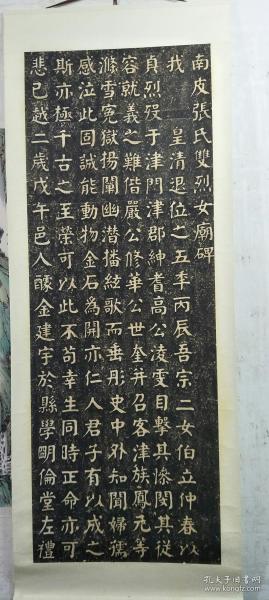 南皮張氏雙烈女廟碑
我　皇清退位之五年丙辰吾宗二女伯立仲春以
貞烈歿于津門津郡紳耆高公凌雯目擊其慘閔其從
容就義之難偕嚴公修華公世奎并召客津族鳳元等
滌雪冤獄揚闡幽潛播絃歌而垂彤史中外知聞婦孺
感泣此固誠能動物金石為開亦仁人君子有以成之
斯亦極千古之至榮可以此不苟幸生同時正命亦可
悲已越二歲戊午邑人醵金建宇於縣學明倫堂左禮
孔夫子旧书网